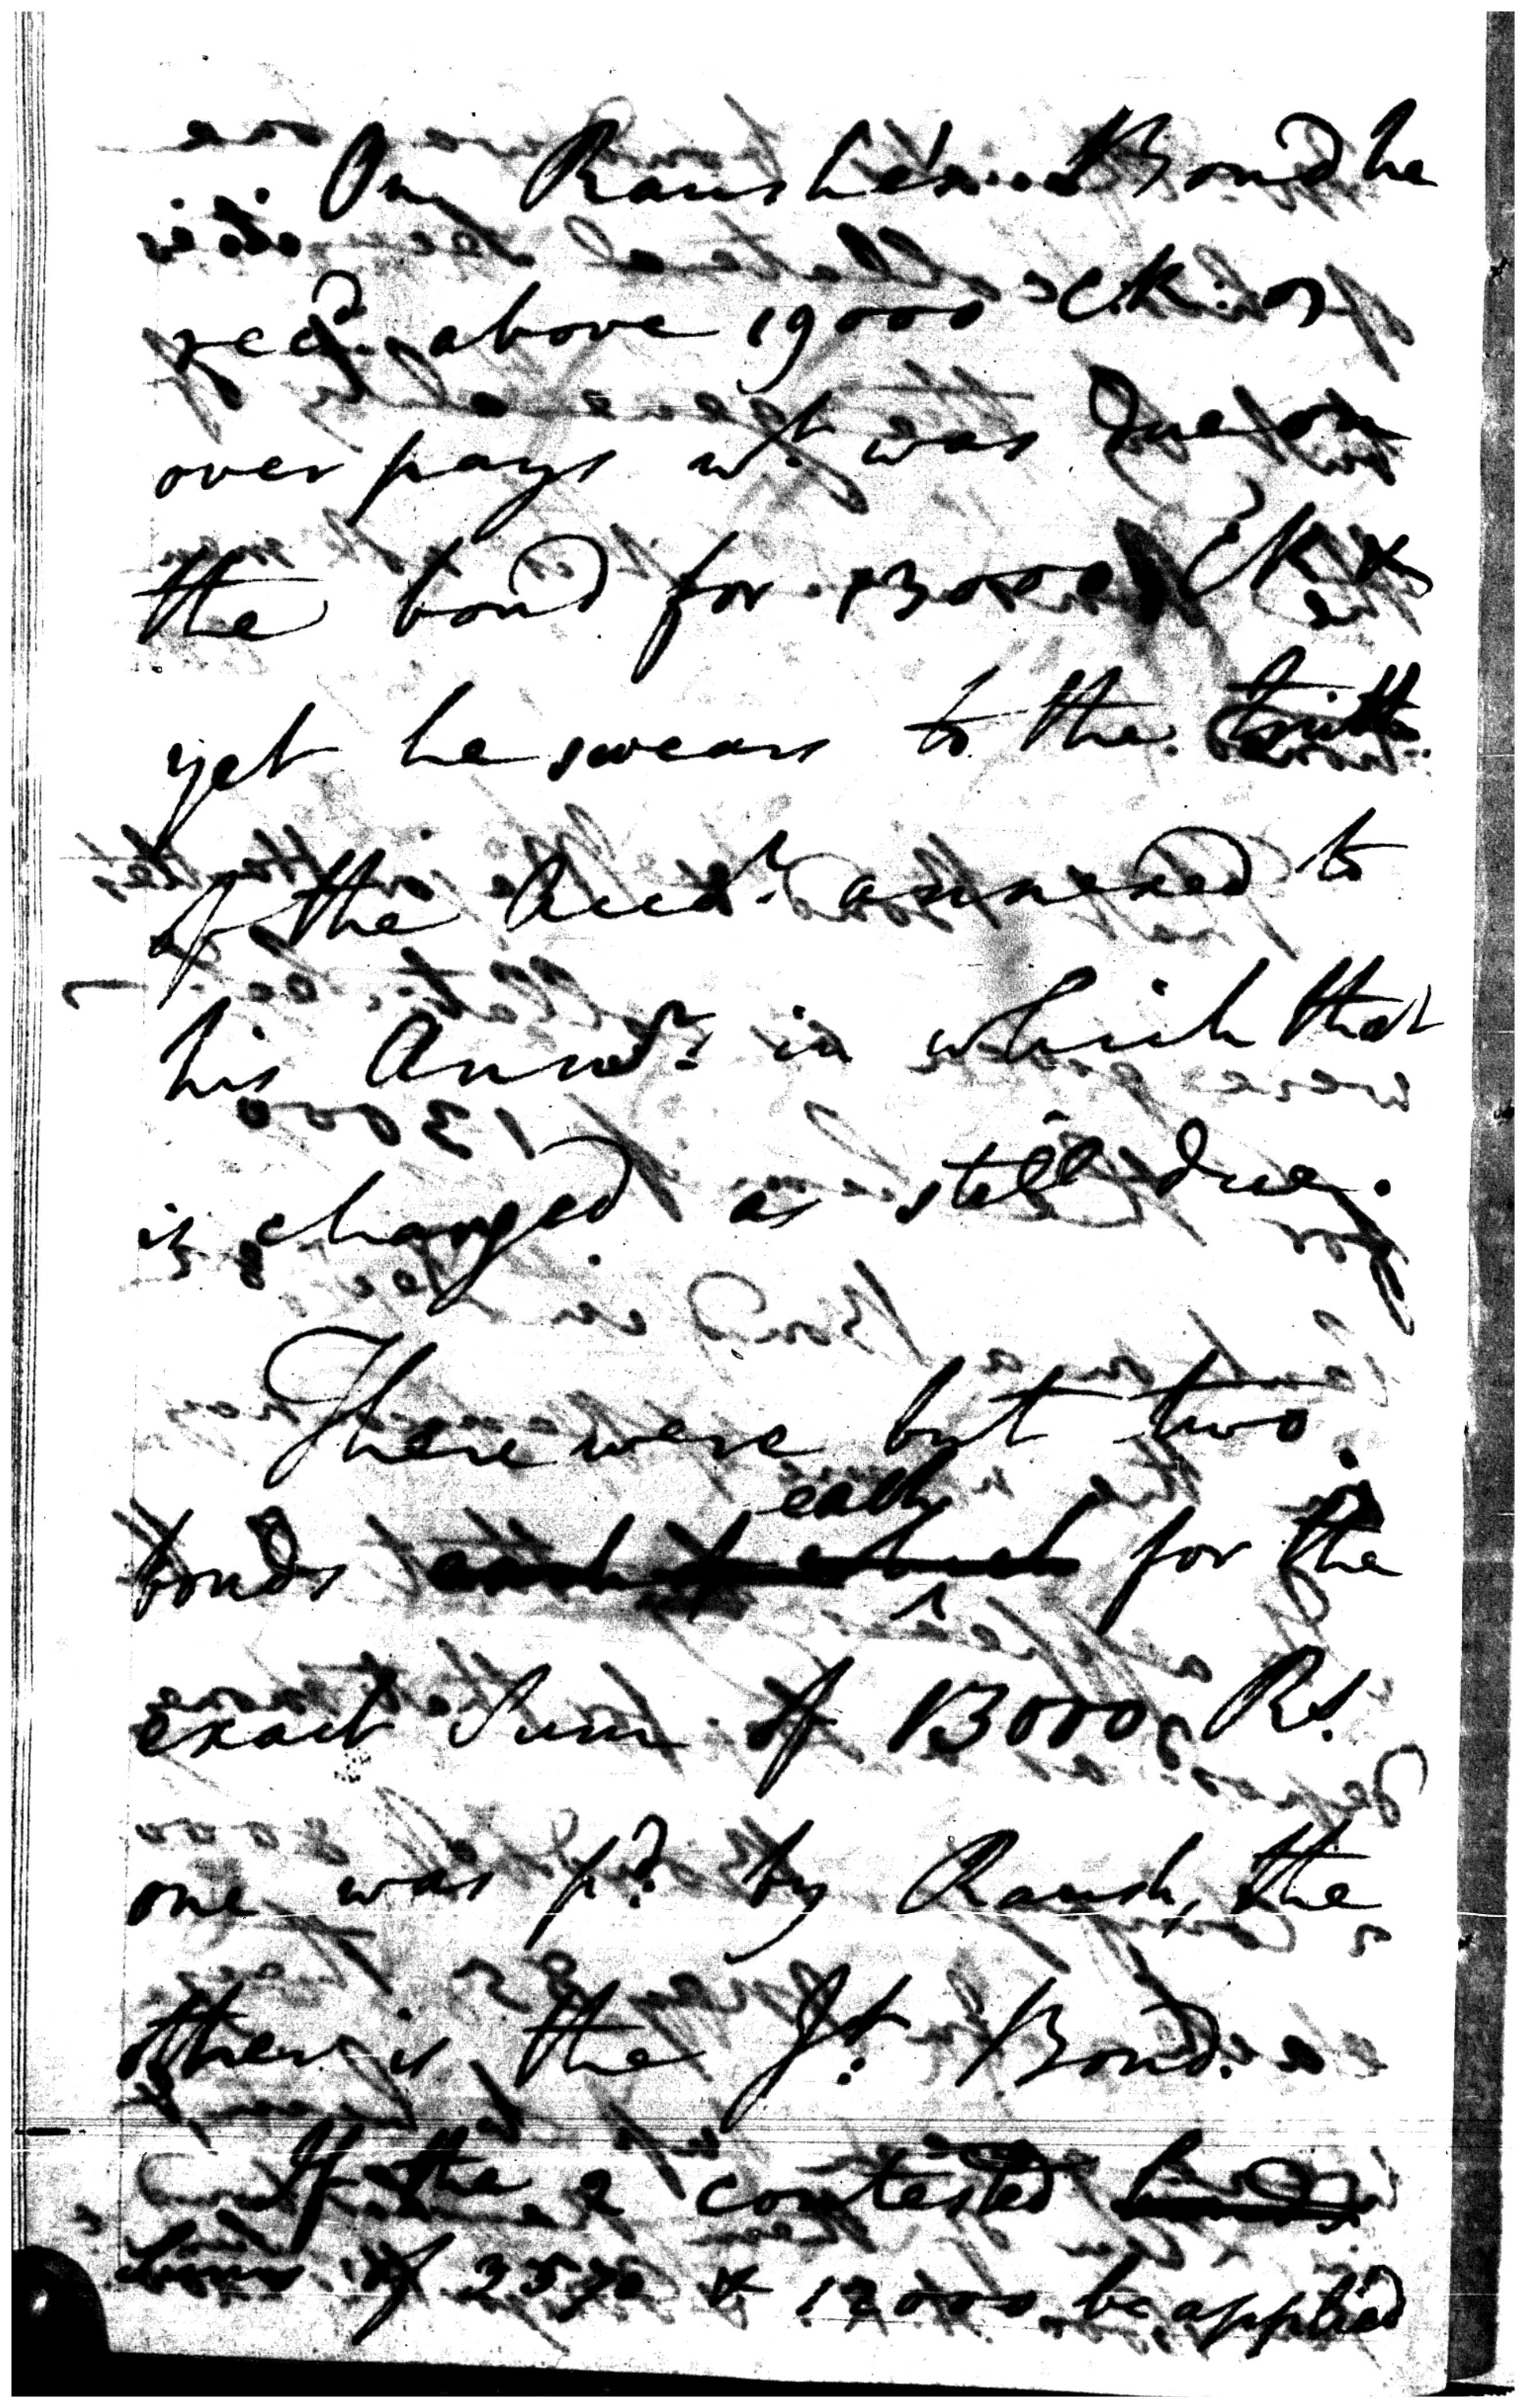 On Raush's Bond he
recd. above 19000 CR: or
over pays wt. was due on
the bond for 13000 CR &
yet he swears to the truth
of the Acct. annexed to
his Answr. in which that
is charged as still due.
There were but two
bonds each for the
exact Sum of 13000 Rs.
one was pd. by Raush, the
other is the Jt. Bond.
If the 2 contested
Sums of 2570 & 13000 be applied